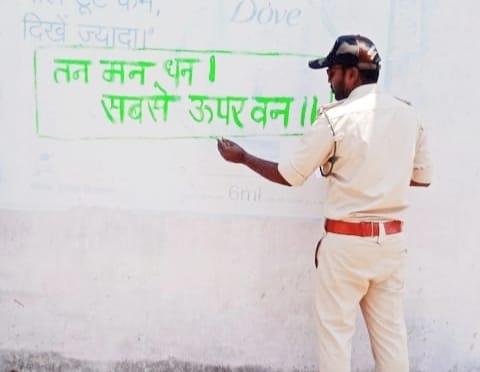 Dove
दिखें ज्यादा।
तन मन धन।
सबसे ऊपर वन॥
6ml